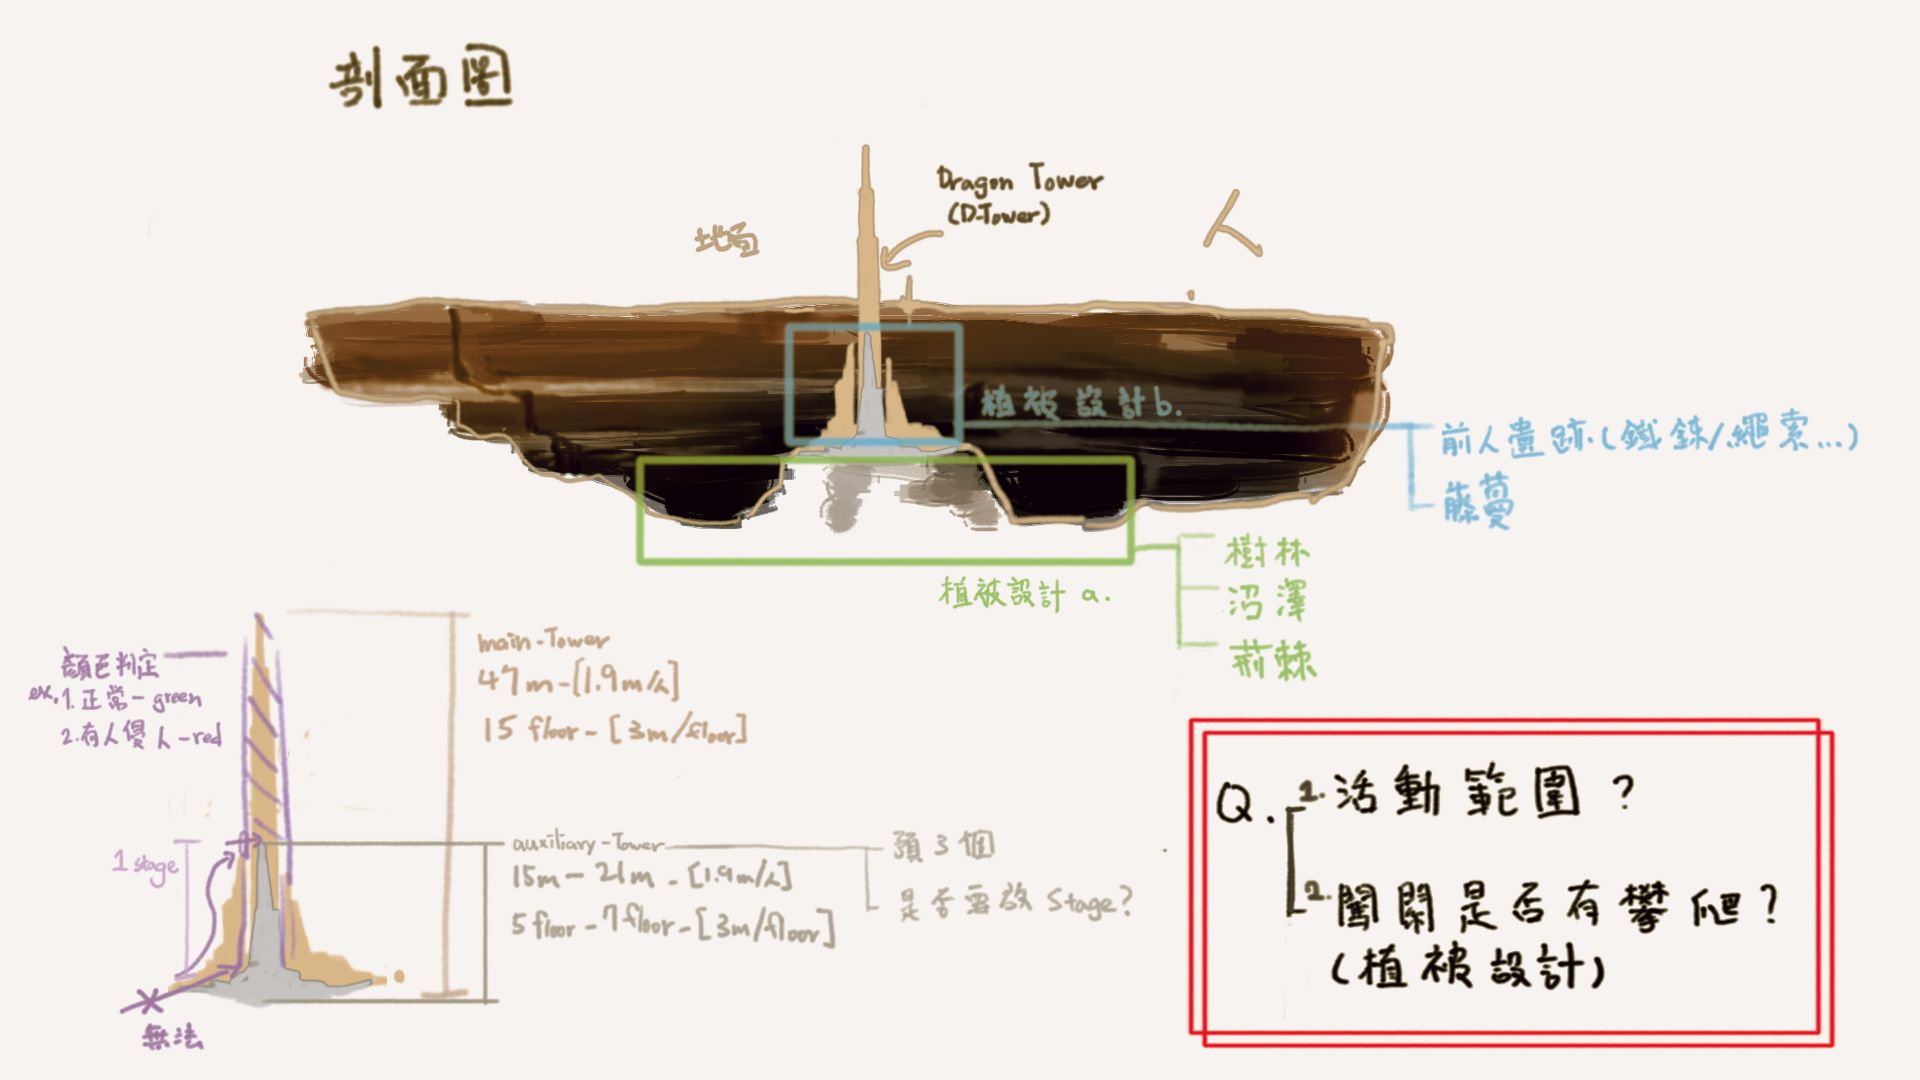 剖面圖
Dragon Tower
(D-Tower)
人
植被設計b.
前人遺跡.(鐵鍊/繩索...)
藤蔓
植被設計 a.
樹林
沼澤
荊棘
顏色判定
ex.1.正常-green
2.有人侵入-red
main-Tower
47m-[1.9m/人]
15 floor-[3m/floor]
1 stage
auxiliary-Tower
15m-21m-[1.9m/人]
5 floor-7 floor-[3m/floor]
預3個
是否要放 Stage?
無法
Q.
1.活動範圍?
2.闖關是否有攀爬?
(植被設計)